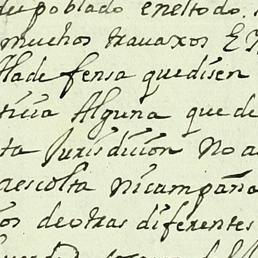 despoblado enel todo
muchos travaxos E
llade fensa que disen
ticia Alguna que de
ta Jurisdicion No a
aescolta nicampaña
os de otras diferentes